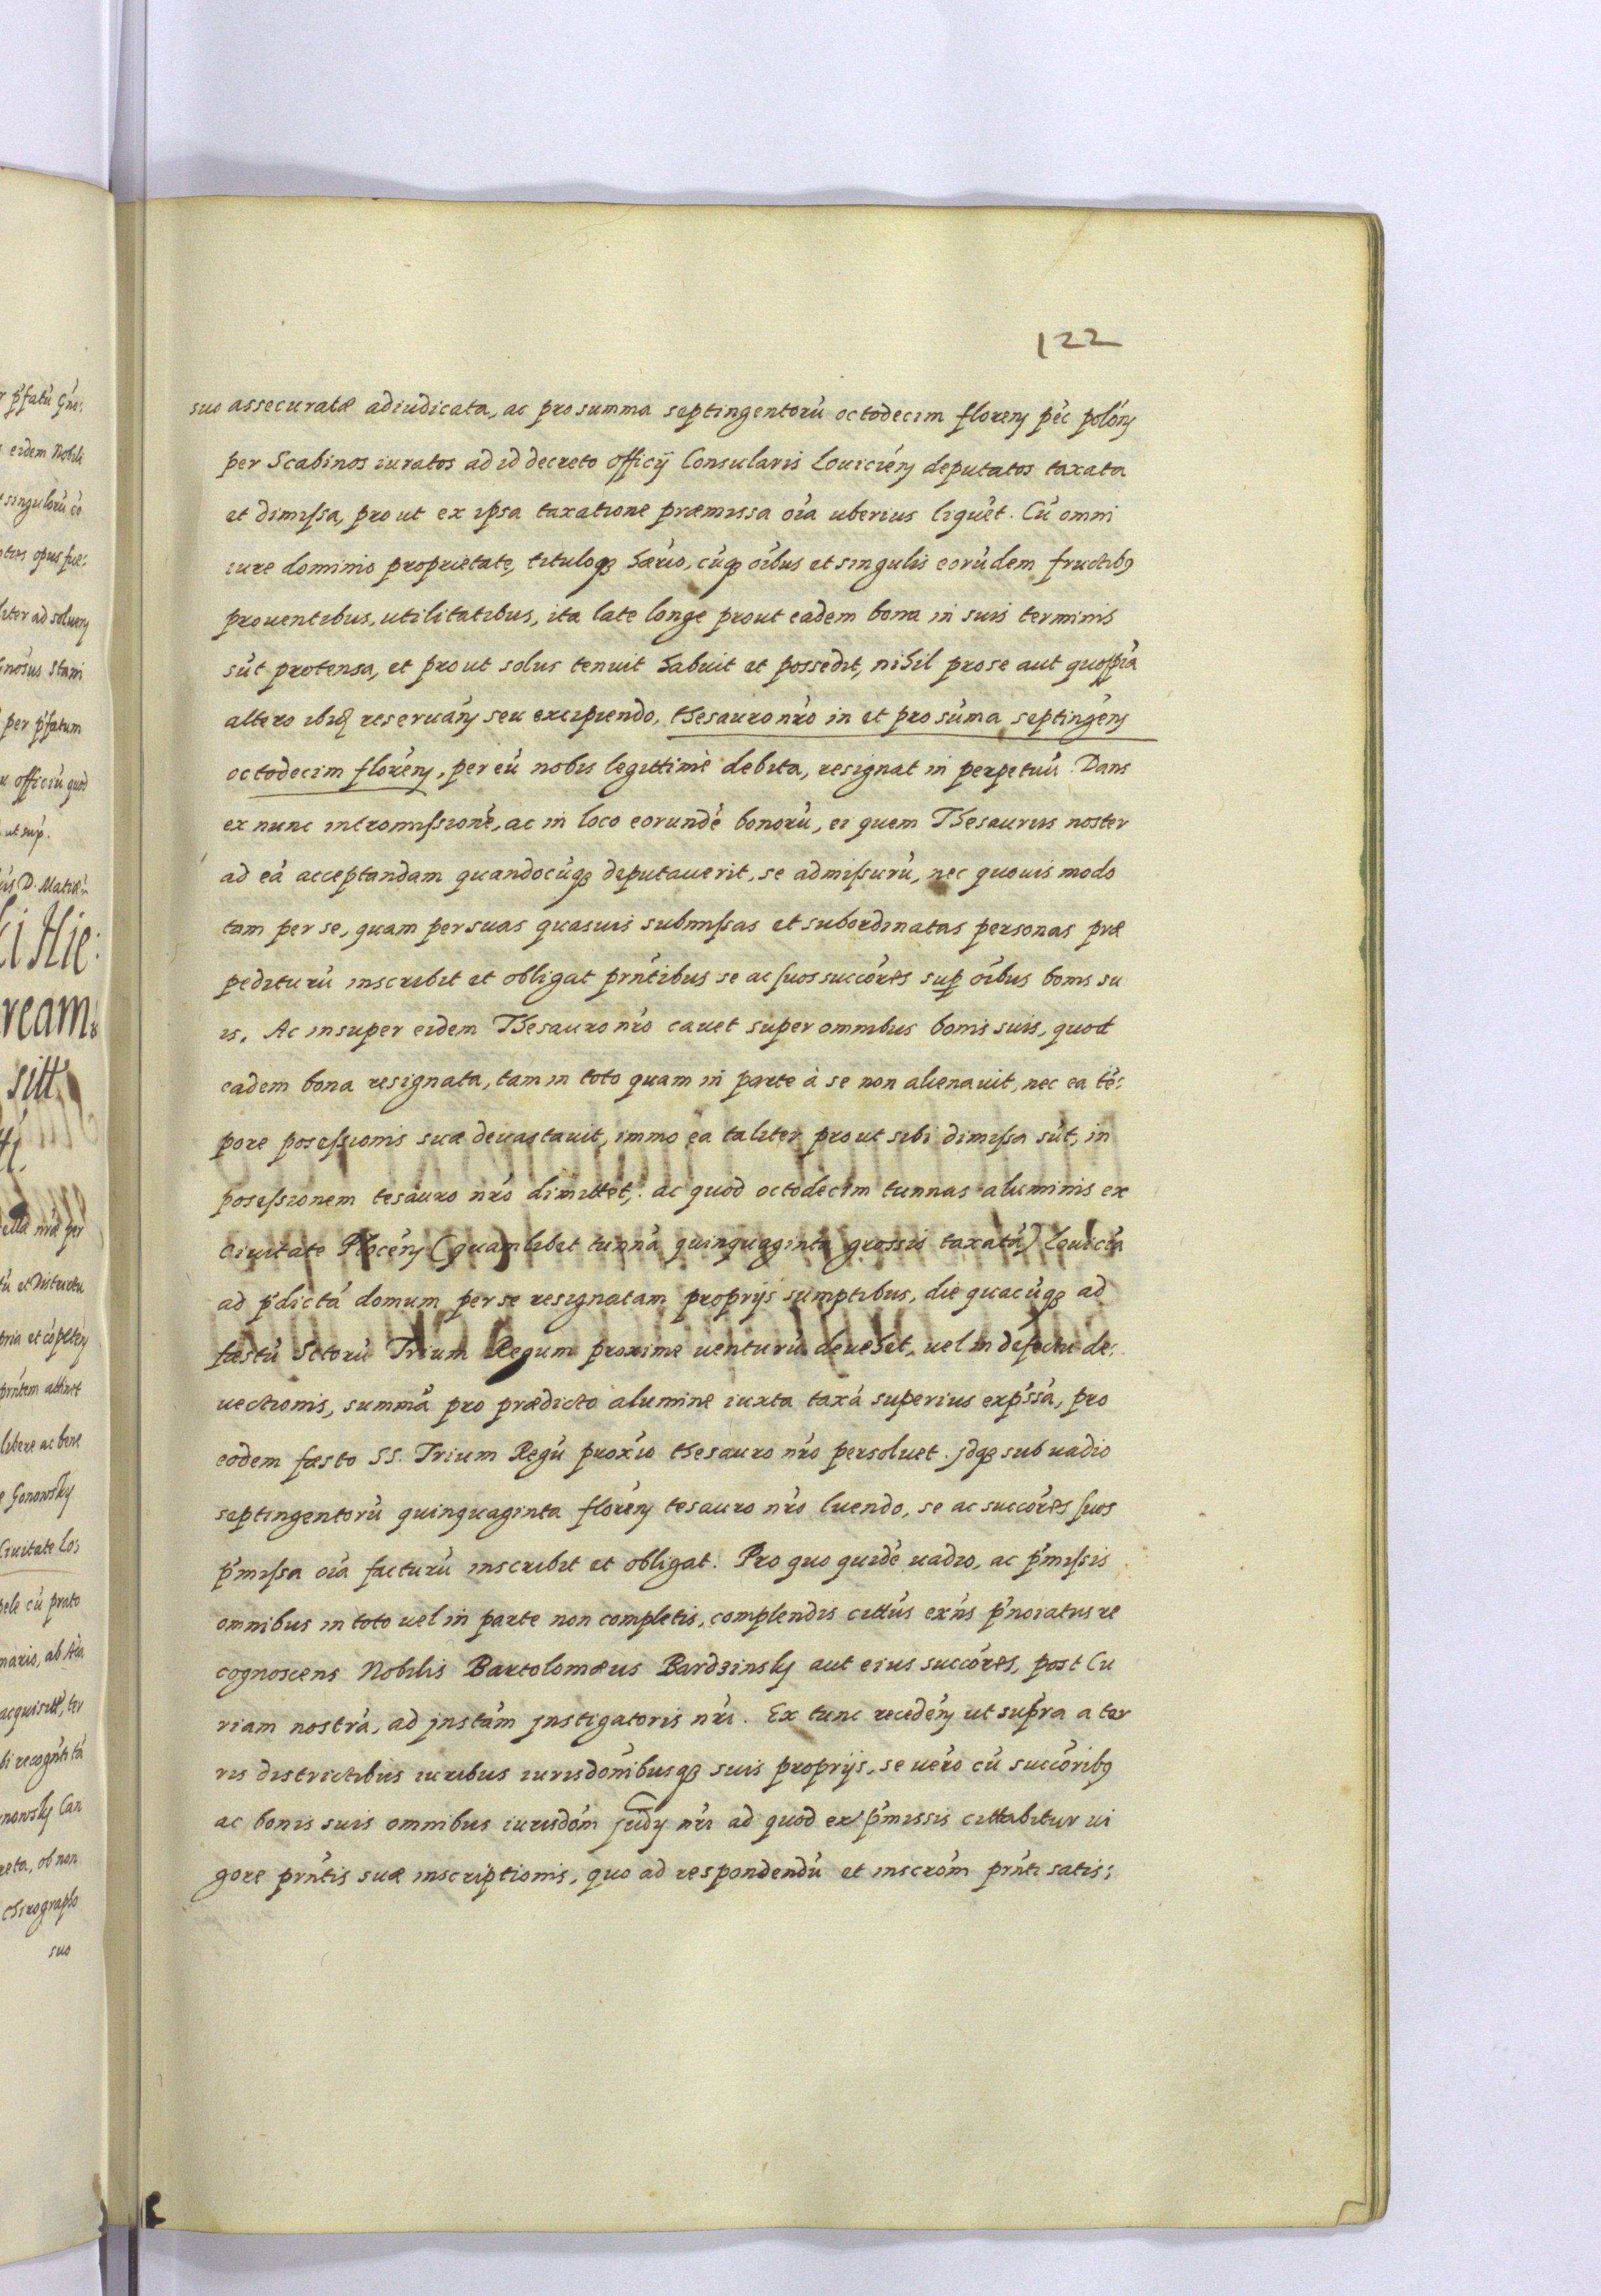 122
suo assecuratæ adiudicata, ac pro summa septingentorũ octodecim floreñ pẽc polõñ
per Scabinos iuratos ad id decreto officij Consularis Louicieñ deputatos taxata
et dimissa, prout ex ipsa taxatione præmissa oĩa uberius liquẽt. Cũ omni
iure dominio proprietate, tituloq₃ hærio, cũq₃ oĩbus et singulis eorũdem fructib9
prouentibus, utilitatibus, ita late longe prout eadem bona in suis terminis
sũt protensa, et prout solus tenuit habuit et possedit, nihil pro se aut quopiã
altero ibid reseruañ seu excipiendo, thesauro nr̃o in et pro sũma septingeñ
octodecim floreñ, per eũ nobis legittimè debita, resignat in perpetuũ. Dans
ex nunc intromissionẽ, ac in loco eorundẽ bonorũ, ei quem Thesaurus noster
ad eã acceptandam quandocũq₃ deputauerit, se admissurũ, nec quouis modo
tam per se, quam per suas quasuis submissas et subordinatas personas præ
pediturũ inscribit et obligat pr̃ntibus se ac suos succõres sup oĩbus bonis su
is. Ac insuper eidem Thesauro nr̃o cauet super omnibus bonis suis, quod
eadem bona resignata, tam in toto quam in parte à se non alienauit, nec ea tẽ:
pore posessionis suæ deuastauit, immo ea taliter prout sibi dimissa sũt, in
posessionem tesauro nr̃o dimittet,. ac quod octodecim tunnas aluminis ex
Ciuitate Ploceñ (quamlibet tunnã quinquaginta grossis taxatã) Louiciã
ad p̃dictã domum per se resignatam proprijs sumptibus, die quacũq₃ ad
fæstũ Sctorũ Trium Regum proxime uenturũ deuehet, uel in defectu de:
uectionis, summã pro prædicto alumine iuxta taxã superius exp̃ssã, pro
eodem fæsto SS. Trium Regũ proxĩo thesauro nr̃o persoluet. jdq₃ sub uadio
septingentorũ quinquaginta floreñ tesauro nr̃o luendo, se ac succõres suos
p̃missa oĩa facturũ inscribit et obligat. Pro quo quidẽ uadio, ac p̃missis
omnibus in toto uel in parte non completis, complendis cittũs exñs p̃noiatus re
cognoscens Nobilis Bartolomæus Bardzinsky aut eius succõres, post Cu
riam nostrã, ad jnstãm jnstigatoris nr̃i. Ex tunc recedeñ ut supra a ter
ris districtibus iuribus iurisdõnibusq₃ suis proprijs, se uero cũ succõrib9
ac bonis suis omnibus iurisdõm judy nr̃i ad quod ex p̃missis cittabitur ui
gore pr̃ntis suæ inscriptionis, quo ad respondendũ et inscrõm pr̃nti satis: